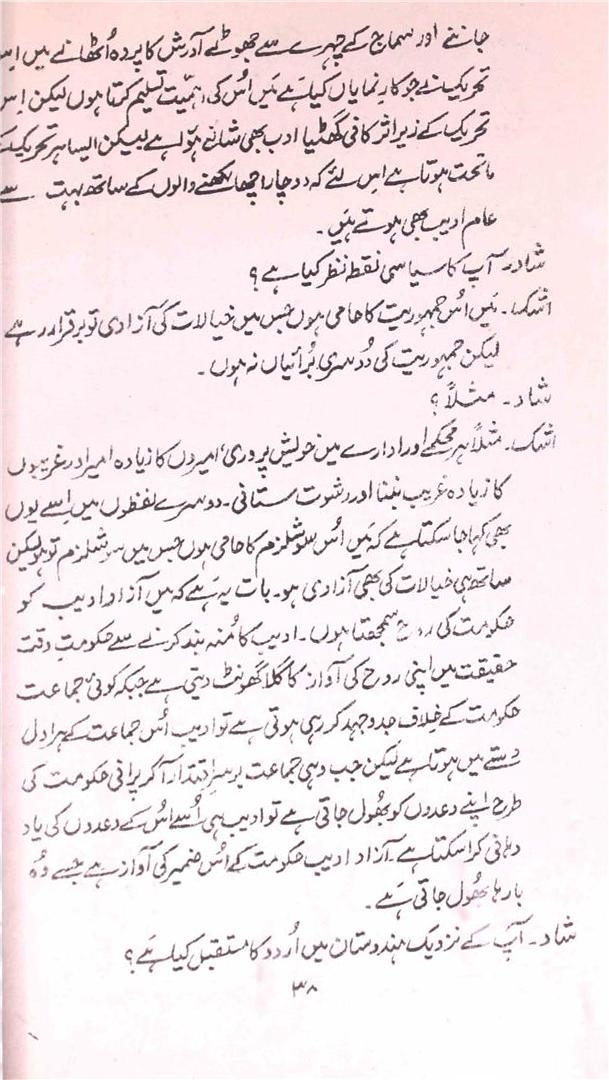 جاننے اور سماج کے چہرے سے جھوٹے آدرش کا پردہ اُٹھانے میں اِس
تحریک نے جو کارِ نمایاں کیا ہے میں اُس کی اہمیّت تسلیم کرتا ہوں لیکن اِس
تحریک کے زیرِ اثر کافی گھٹیا ادب بھی شائع ہوا ہے لیکن ایسا ہر تحریک کے
ماتحت ہوتا ہے اس لئے کہ دو چار اچھا لکھنے والوں کے ساتھ بہت سے
عام ادیب بھی ہوتے ہیں۔
شاد۔ آپ کا سیاسی نقطہ نظر کیا ہے؟
اشک۔ میں اُس جمہوریت کا حامی ہوں جس میں خیالات کی آزادی تو برقرار رہے
لیکن جمہوریت کی دُوسری بُرائیاں نہ ہوں۔
شاد۔ مثلاً؟
اشک۔ مثلاً ہر محکمے اور ادارے میں خویش پروری، امیروں کا زیادہ امیر اور غریبوں
کا زیادہ غریب بننا اور رشوت ستانی۔ دوسرے لفظوں میں اِسے یوں
بھی کہا جا سکتا ہے کہ میں اُس سوشلزم کا حامی ہوں جس میں سوشلزم تو ہو لیکن
ساتھ ہی خیالات کی بھی آزادی ہو۔ بات یہ ہے کہ میں آزاد ادیب کو
حکومت کی روح سمجھتا ہوں۔ ادیب کا مُنہ بند کرنے سے حکومتِ وقت
حقیقت میں اپنی روح کی آواز کا گلا گھونٹ دیتی ہے جبکہ کوئی جماعت
حکومت کے خلاف جدوجہد کر رہی ہوتی ہے تو ادیب اُس جماعت کے ہراول
دستے میں ہوتا ہے لیکن جب وہی جماعت برسرِ اقتدار آکر پرانی حکومت کی
طرح اپنے وعدوں کو بھُول جاتی ہے تو ادیب ہی اُسے اُس کے وعدوں کی یاد
دہانی کرا سکتا ہے۔ آزاد ادیب حکومت کے اُس ضمیر کی آواز ہے جسے وُہ
بارہا بھُول جاتی ہے۔
شاد۔ آپ کے نزدیک ہندوستان میں اُردو کا مستقبل کیا ہے؟
۳۸